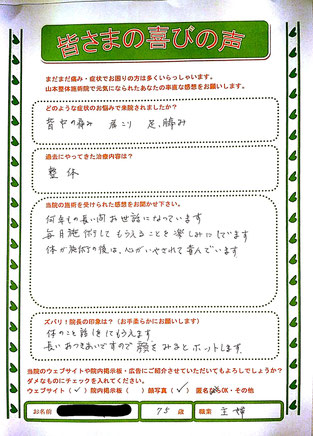 皆さまの喜びの声
まだまだ痛み・症状でお困りの方は多くいらっしゃいます。
山本整体施術院で元気になられたあなたの率直な感想をお願いします。
どのような症状のお悩みで来院されましたか？
背中の痛み 肩こり 足、膝み
過去にやってきた治療内容は？
整体
当院の施術を受けられた感想をお聞かせ下さい。
何年もの長い間お世話になっています
毎月施術してもらえることを楽しみにしています
体が施術の後は、心がいやされて喜んでいます
ズバリ！院長の印象は？（お手柔らかにお願いします）
体のこと話をきてもらえます
長いおつきあいですので顔をみるとホットします。
当院のウェブサイトや院内掲示板・広告にご紹介させていただいてもよろしいでしょうか？
ダメなものにチェックを入れてください。
ウェブサイト（✓）院内掲示板・（ ）顔写真（✓）匿名 OK・その他
お名前 75歳 職業 主婦